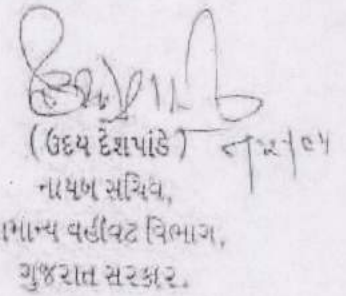 (ઉદય દેશપાંડે)
નાયબ સચિવ,
માન્ય વહીવટ વિભાગ,
ગુજરાત સરકાર.